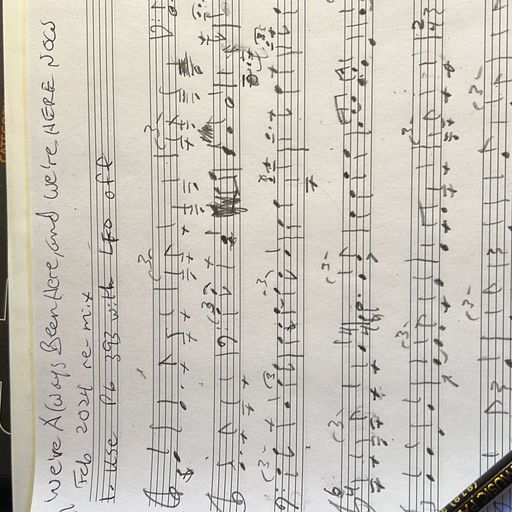 We're Always Been Here, and we're HERE NOW
Feb 2024 re-mix
1. Use Pb 393 with LFO off